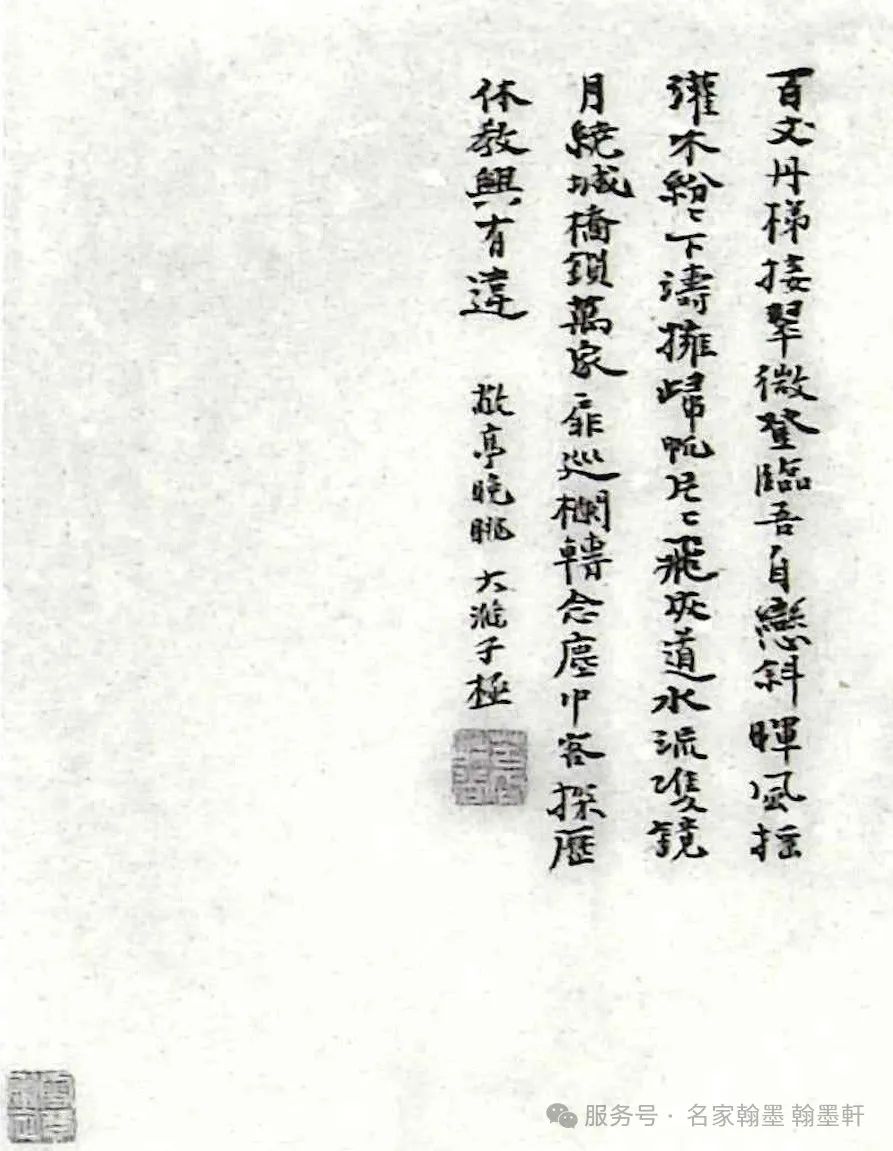 百丈丹梯接翠微登臨吾自戀斜暉風搖
灌木紛〻下濤擁歸帆片〻飛灰道水流雙鏡
月繞城橋鎖萬家扉巡欄轉念塵中客探歷
休教興有違
敬亭晚眺 大滌子極
服务号· 名家翰墨 翰墨軒